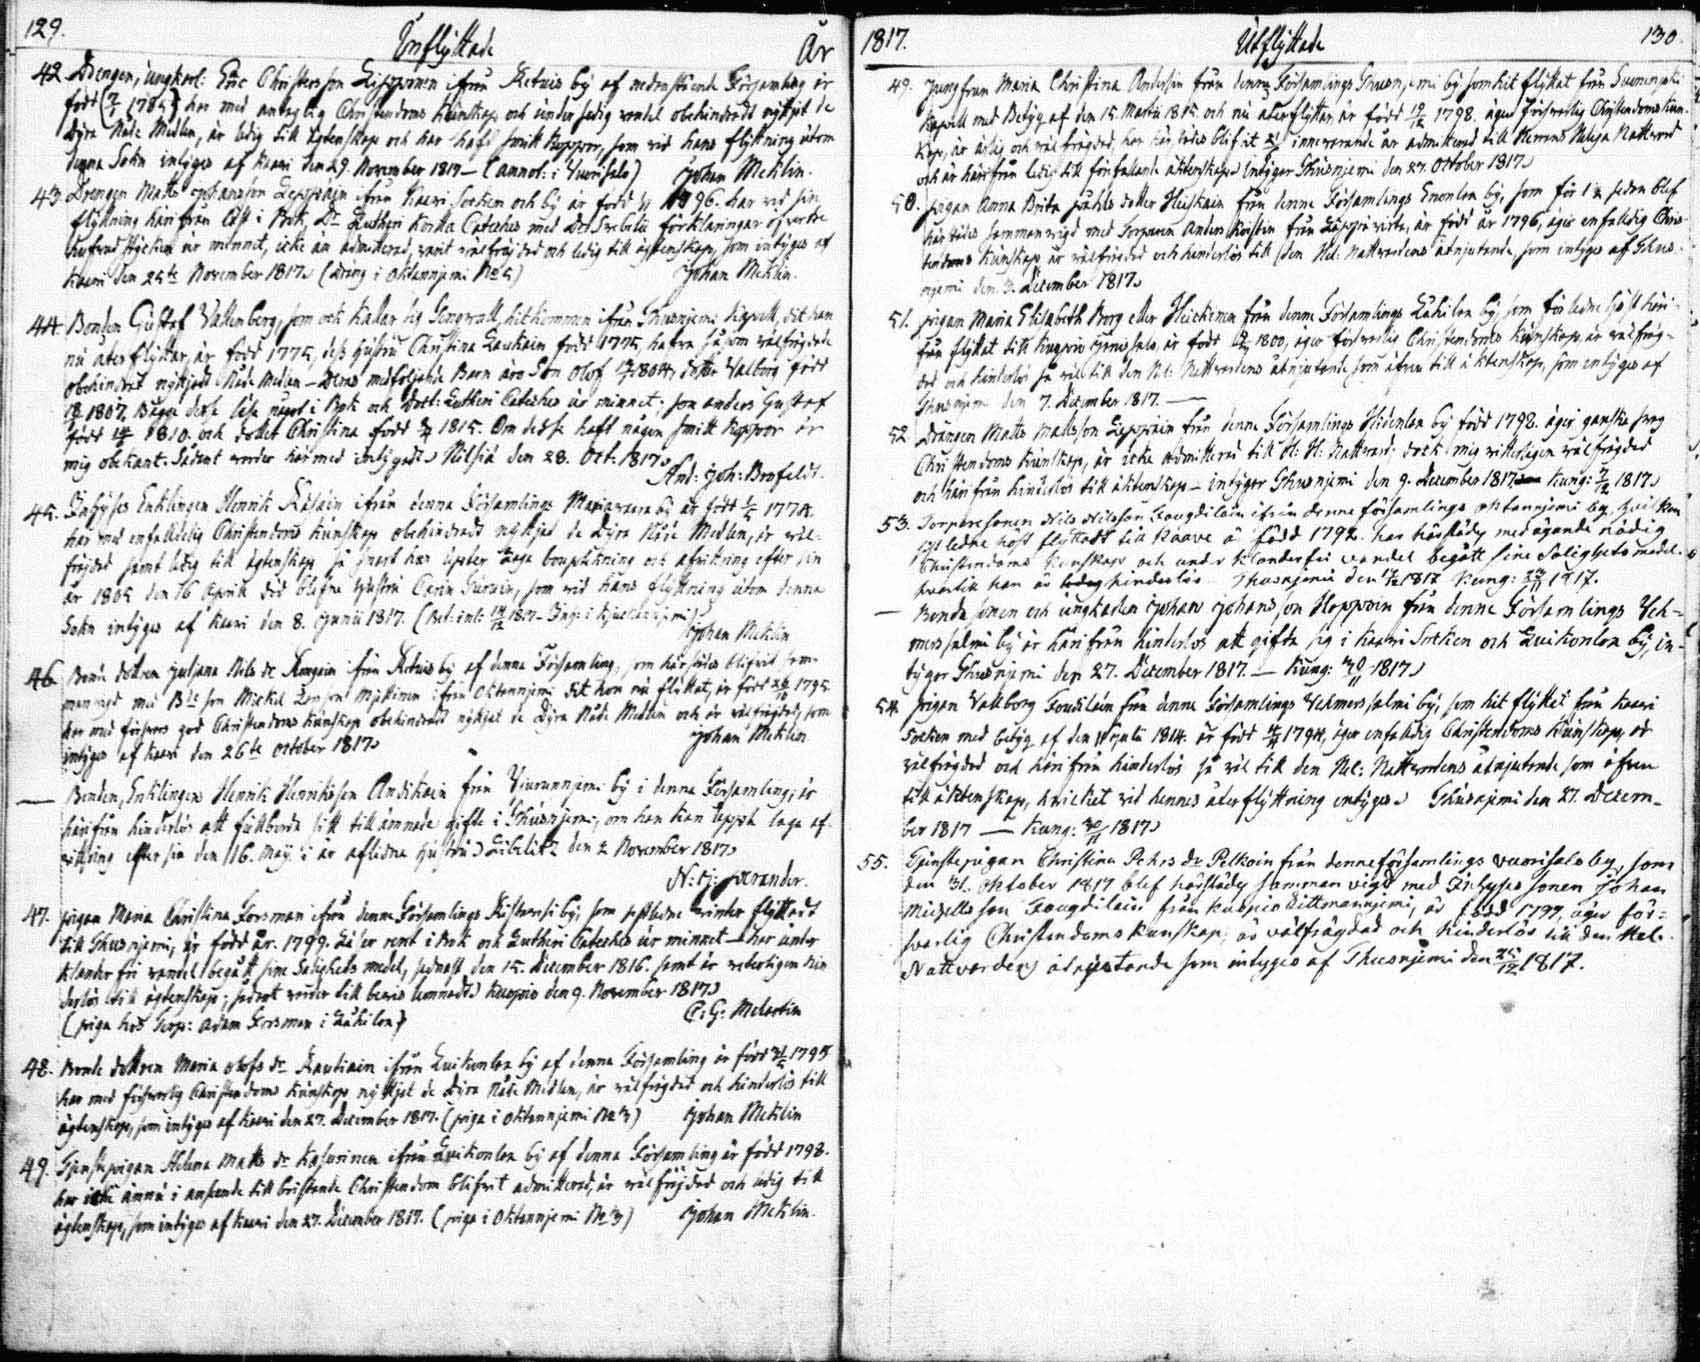 129.
Inflyttade
År
42. Drengen, ungkarl: Eric Christersson Lipponen ifrån Retuis by af nedanstående Församling är
född 1785, har med antaglig Christendoms Kunskap och under sedig vandel obehindradt nyttjat de
Dyra Nåde Medlen, är ledig till ägtenskap och har haft smitt koppor, som vid hans flyttning utom
denna Sokn intygas af Kaavi den 29 November 1817 — (annot: i Vuorisalo) Johan Meklin.
43. Drengen Matts Johansson Leppäin ifrån Kaavi Socken och by är född 1796. har vid sin
flyttning härifrån Läst i Bok, Dr Lutheri Korta Cateches med Doct Svebelii förklaringar öfver de
Hufvud Stycken ur minnet, icke än admitterad, samt välfrägdad och ledig till ägtenskap, som intygas af
Kaavi den 25te November 1817. (Dreng i Oktannjemi No 5) Johan Meklin.
44. Bonden Gustaf Vallenberg, som ock kallar sig Gengvall, hitkommen ifrån Thusnjemi Kapell, dit han
nu återflyttar, är född 1775, dess Hustru Christina Laukain född 1775, hafva såsom välfrägdade
obehindrat nyttjadt Nåde Medlen — Deras medföljande Barn äro Son Olof 1804, dotter Valborg född
1807, Bägge desse läse något i Bok och Doct: Lutheri Cateches ur minnet; son Anders Gustaf
född 1810. och dotter Christina född 1815. Om desse haft någon smitt koppor är
mig obekant. Sådant varder härmed intygadt. Nilsiä den 28. Oct. 1817.
And: Joh: Brofeldt.
45. Inhyses Enklingen Henrik Räsäin ifrån denna Församlings by är född 1774.
har med enfalldelig Christendoms Kunskap obehindradt nyttjat de Dyra Nåde Medlen, är väl-
frägdad samt ledig till ägtenskap så snart han uppter Laga bouptekning och afvittring efter sin
år 1805 den 16 April död blefne Hustru Carin som vid hans flyttning utom denna
Sokn intygas af Kaavi den 8. Junii 1817.
Johan Meklin
46. Bonde dottren Juliana Nils dr ifrån Retuis by af denna Församling, som härstädes blifvit sam-
manvigd med Bde son Mickel Larsson Miettinen ifrån Oktannjemi dit hon nu flyttat, är född 1795
har med försvars god Christendoms Kunskap obehindradt nyttjat de Dyra Nåde Medlen och är välfrägdad, som
intygas af Kaavi den 26te October 1817. Johan Meklin
— Bonden, Enklingen Henrik Henriksson Andikain från Viurunnjemi by i denna Församling, är
härifrån hinderlös att fullborda sitt tillämnade gifte i Thusnjemi, om han kan uppte laga af-
vittring efter sin den 16. Maj i år aflidna Hustru. Libelitz den 2 November 1817.
N: J: Perander.
47. Pigan Maria Christina Forsman ifrån denna Församlings by, som sistledne winter flyttadt
till Thusnjemi, är född år. 1799. Läser rent i Bok och Lutheri Cateches ur minnet — har under
klander fri vandel begått sine Salighets medel, sednast den 15. December 1816. samt är veterligen hin
derlös till ägtenskap; sådant varder till bevis lemnadt. Kuopio den 9. November 1817.
(piga hos Torp: Adam Forsman i Lähilon) C: G: Melartin
48. Bonde dottren Maria Olofs dr Rautiain ifrån Luikonlax by af denna Församling är född 1795
har med försvarlig Christendoms Kunskap nyttjat de Dyra Nåde Medlen, är välfrägdad och hinderlös till
ägtenskap, som intygas af Kaavi den 27. December 1817. (piga i Oktannjemi No 3) Johan Meklin
49. Tjenstepigan Helena Matts dr Kasurinen ifrån Luikonlax by af denna Församling är född 1798.
har icke ännu i anseende till bristande Christendom blifvit admitterad, är välfrägdad och ledig till
ägtenskap, som intygas af Kaavi den 27. December 1817. (piga i Oktannjemi No 3) Johan Meklin.
1817.
Utflyttade
130.
49. Jungfrun Maria Christina Andersin från denna Församlings by som hit flyttat från
Kapell med Betyg af den 15 Martii 1815. och nu återflyttar, är född 1798. äger Försvarlig Christendoms Kun-
skap, är ärlig och välfrägdad, har härstädes blifvit till innevarande år admitterad till Herrens Heliga Nattvard
och är härifrån ledig till förfallande äktenskap. Intyger Thusnjemi den 27. October 1817.
50. Pigan Anna Brita Påhls dotter Heiskain från denne Församlings Enonlax by, som för 1½ sedan blef
härstädes sammanvigd med Torparen Anders från Läppävirta, är född år 1796, eger enfalldig Chris-
tendoms kunskap, är välfrägdad och hinderlös till den Hel: Nattvardens åtnjutande, som intygas af Thus-
njemi den 3. December 1817.
51. Pigan Maria Elisabeth Borg eller Heickinen från denne Församlings Lähilon by, som för ledne höst häri-
från flyttat till Kuopio är född 1800, eger försvarlig Christendoms Kunskap, är välfräg-
dad och hinderlös så väl till den Hel: Nattvardens åtnjutande som äfven till äktenskap, som intygas af
Thusnjemi den 7. December 1817. —
52 Drängen Matts Mattsson Leppäin från denne Församlings by född 1798. äger ganska svag
Christendoms kunskap, är icke admitterad till H: H: Nattvard; dock mig vitterligen välfrägdad
och härifrån hinderlös till äktenskap — intyger Thusnjemi den 9. December 1817. Kung: 1817.
53. Torparesonen Nils Nilsson Fougdilain ifrån denne församlings Oktannjemi by, hvilken
sist ledne höst flyttadt till Kaavi är född 1792. har härstädes med ägande nödig
Christendoms Kunskap och under klanderfri vandel begått sine Salighets medel.
hvartil han är hinderlös. Thusnjemi den 1817 Kung: 1817.
— Bonde sonen och ungkarlen Johan Johansson Hoppain från denne Församlings Veh-
mersalmi by är härifrån hinderlös att gifta sig i Kaavi Socken och Luikonlax by, in-
tyger Thusnjemi den 27. December 1817. — Kung: 1817.
54. Pigan Vallborg Foudilain från denne Församlings Vehmersalmi by, som hit flyttat från Kaavi
Socken med betyg af den Julii 1814. är född 1794, äger enfalldig Christendoms Kunskap, är
välfrägdad och härifrån hinderlös så väl till den Hel: Nattvardens åtnjutande som äfven
till äktenskap, hvilket vid hennes återflyttning intygas. Thusnjemi den 27. Decem-
ber 1817 — Kung: 1817.
55. Tjenstepigan Christina Pehrs dr Pelkoin från denne församlings Vuorisalo by, som
den 31. Oktober 1817 blef härstädes sammanvigd med Inhyses sonen Johan
Michelsson Fougdilain från Kuopio är född 1797, äger för-
svarlig Christendoms kunskap, är välfrägdad och hinderlös till den Hel.
Nattvardens åtnjutande som intyges af Thusnjemi den 1817.